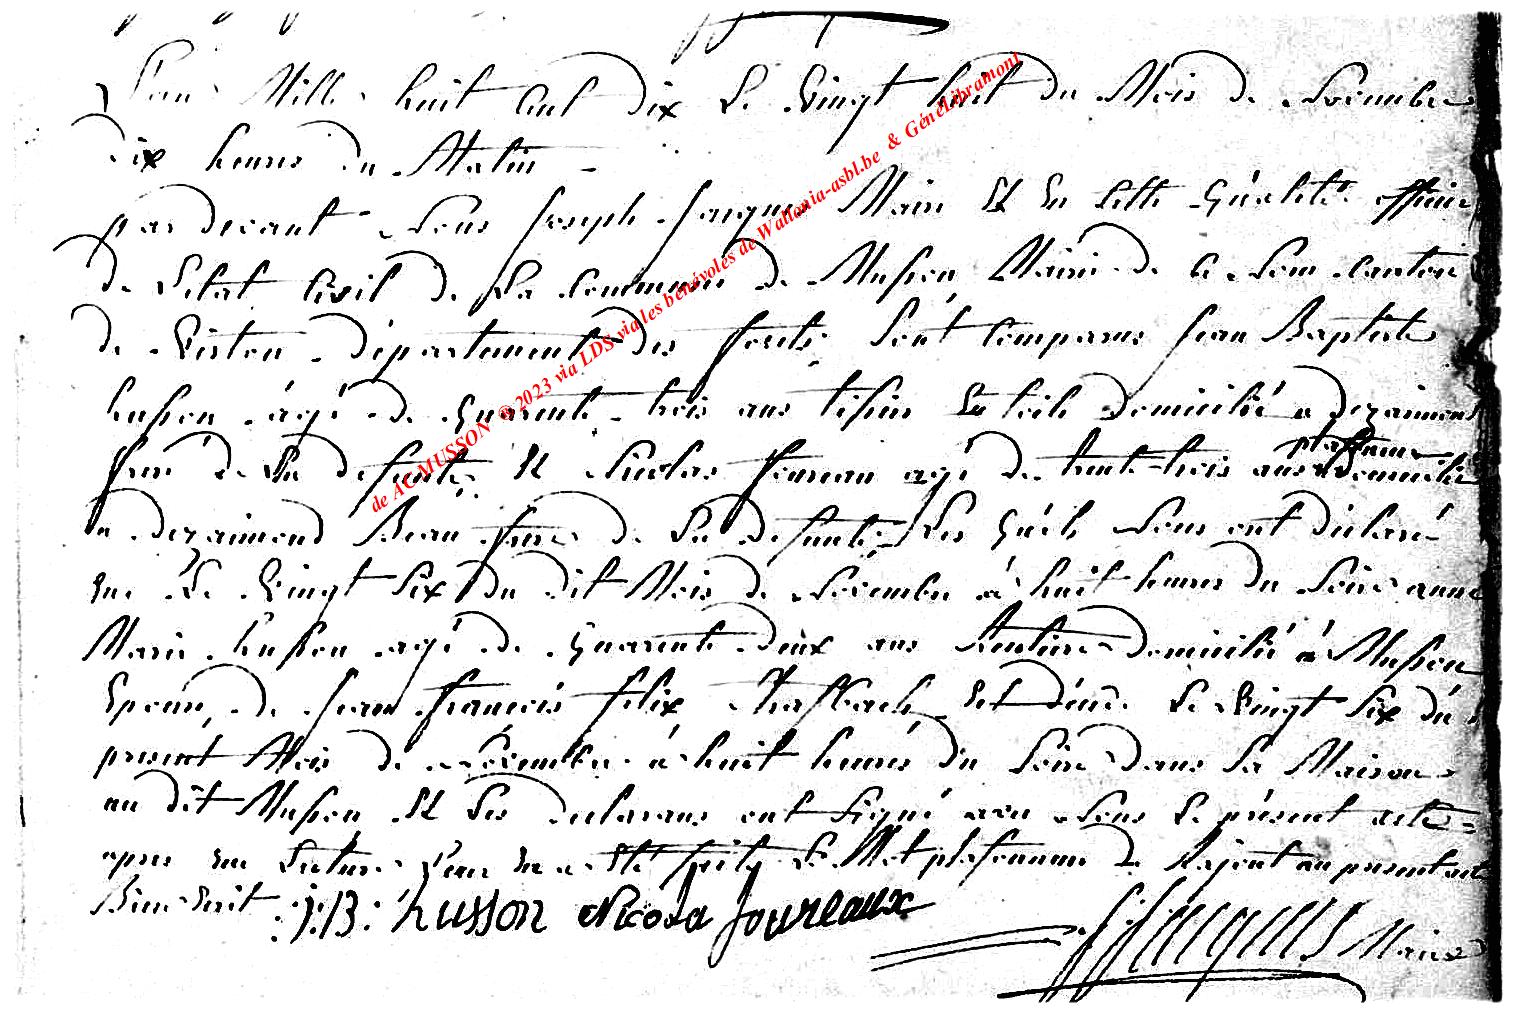 L'an Mille huit Cent dix Le Vingt huit du Mois de Novembre
dix heures du Matin -
par devant Nous Joseph Jacques Maire Et En Cette Qualité officier
de L'etat Civil de La Commune de Musson Mairie de Ce Nom Canton
de Virton département des forêts Sont Comparus Jean Baptiste
husson agé de Quarante trois ans tissier En toile domicilié a dezaimont
frere de La defunte, Et Nicolas Joureau agé de trente trois ans plafonneur domicilié
a dezaimond Beau frere de La defunte, Les Quels Nous ont déclaré
que Le Vingt Six du dit Mois de Novembre à huit heures du Soire anne
Marie husson agé de Quarante deux ans Rentiere domicilié à Musson
Epouse de Jean françois felix Est décédé Le Vingt Six du
present Mois de Novembre à huit heures du Soire dans La Maison
au dit Musson Et Les declarans ont Signé avec Nous Le présent acte
apres que Lecture Leur En a Eté faite Le Mot plafonneur de Rajout au present acte
Bien Ecrit J:B: husson Nicola Joureaux
JJacques Maire
de AC MUSSON © 2023 via LDS via les bénévoles de Wallonia-asbl.be & GénéLibramont